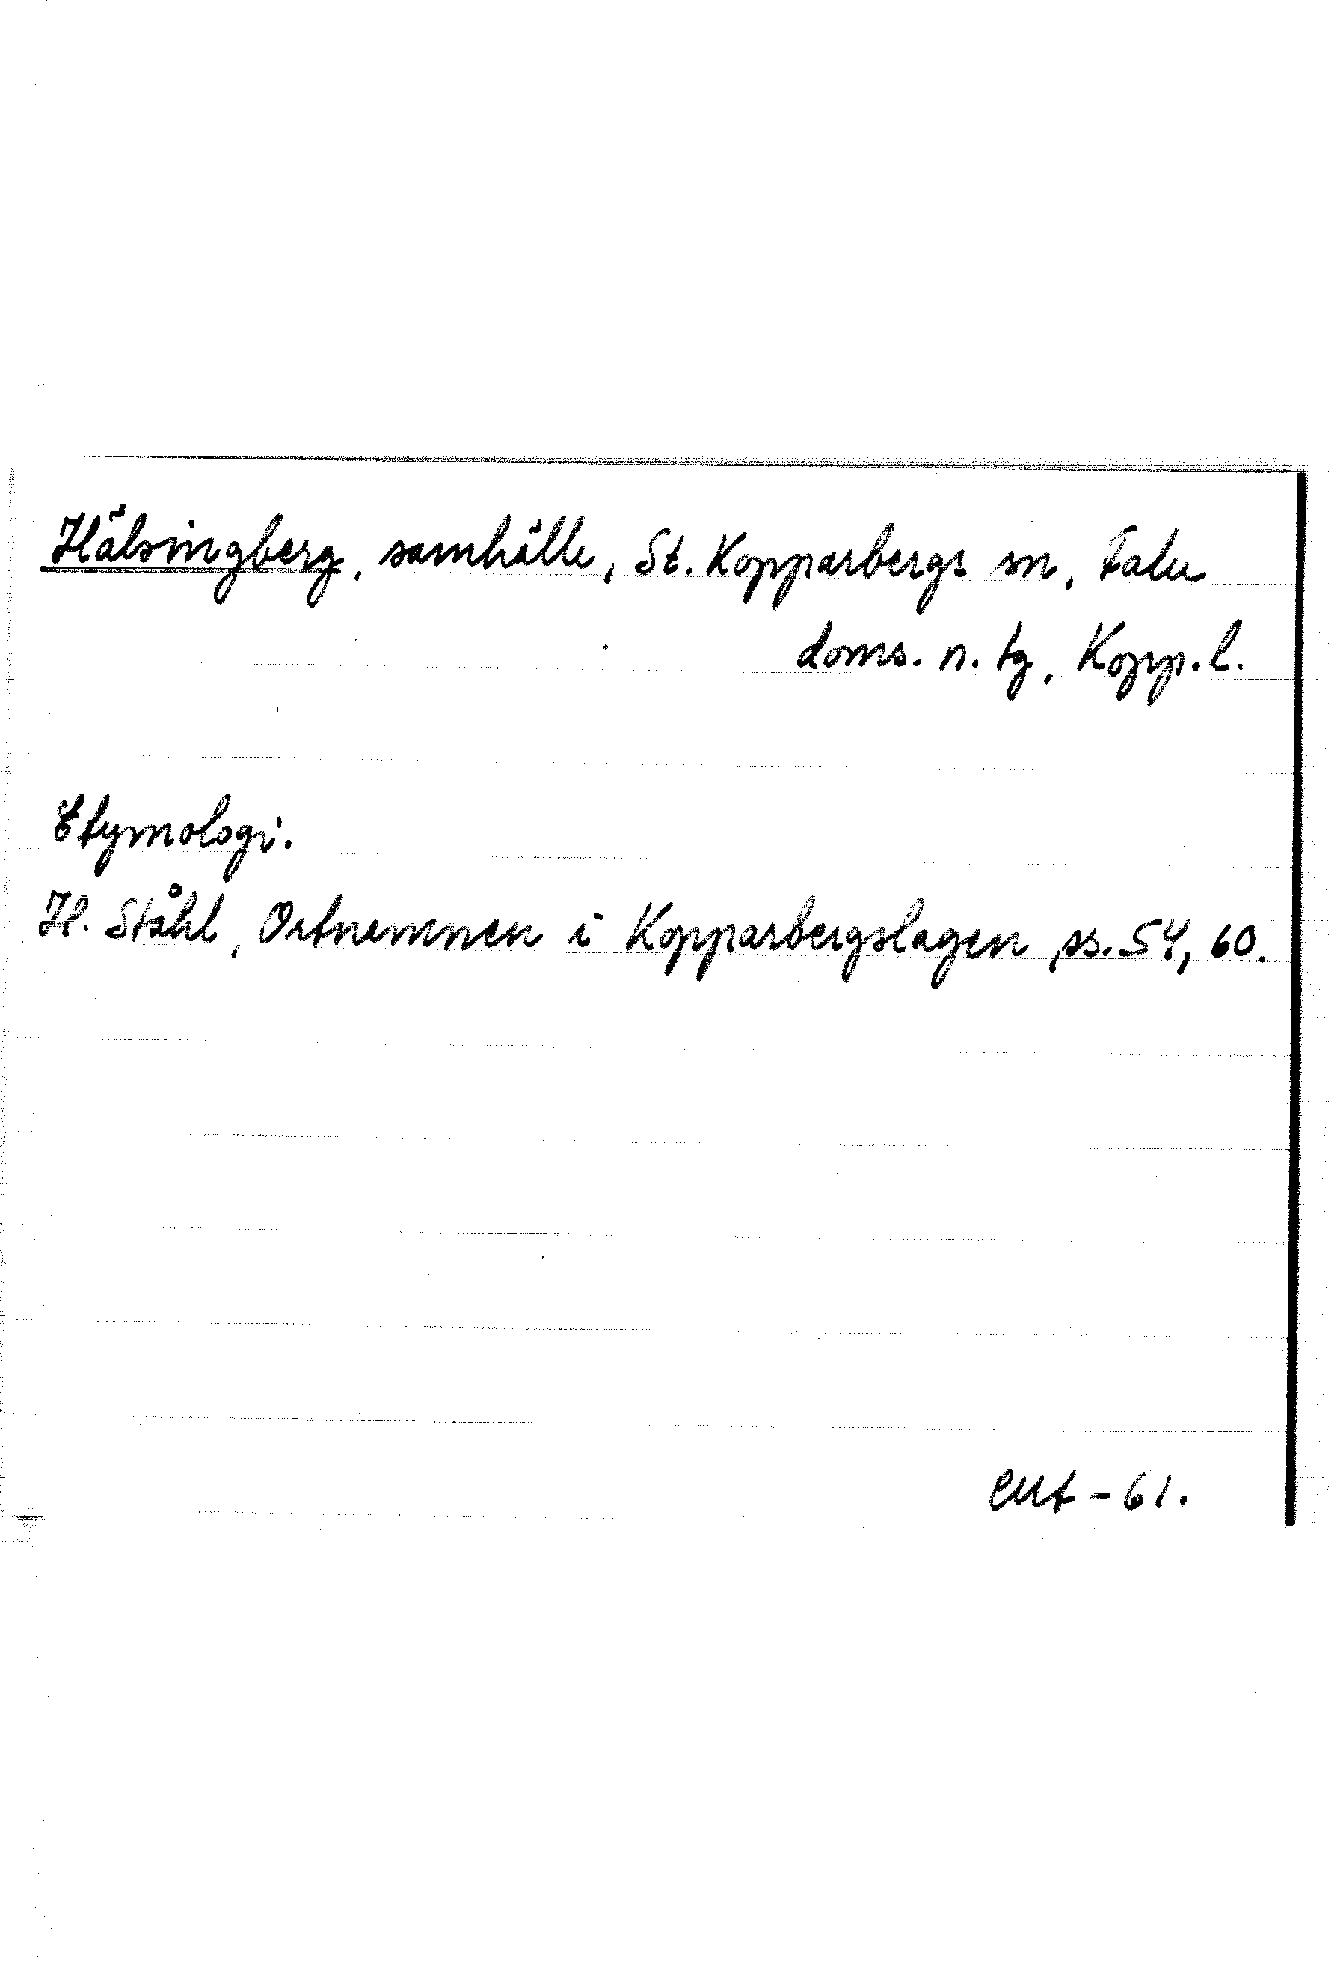 Hälsingberg, samhälle, St. Kopparbergs sn, Falu
doms. n. tg, Kopp. l.
Etymologi.
H. Ståhl, Ortnamnen i Kopparbergslagen, ss. 54, 60.
-61.